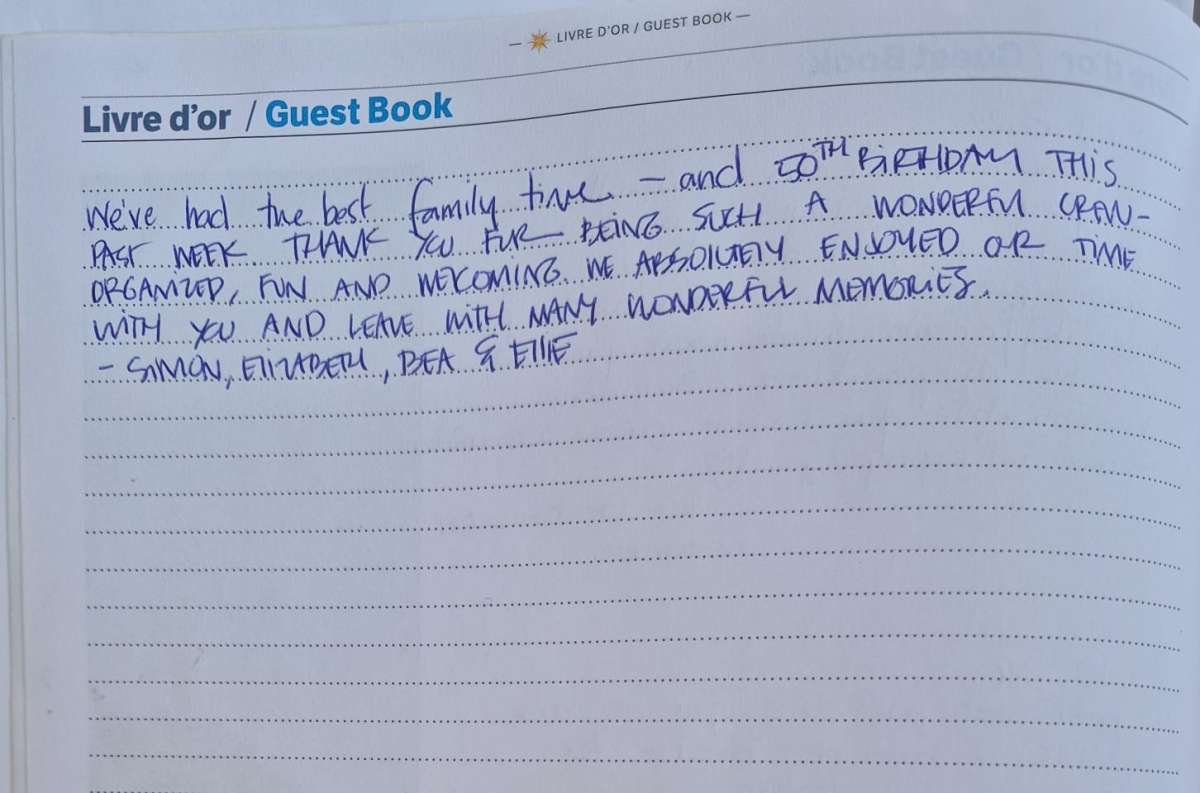 — LIVRE D'OR / GUEST BOOK —
Livre d'or / Guest Book
We've had the best family time — and 50TH BIRTHDAY THIS
PAST WEEK. THANK YOU FUR BEING SUCH A WONDERFUL CRAN-
ORGANIZED, FUN AND WELCOMING. WE ABSOLUTELY ENJOYED OUR TIME
WITH YOU AND LEAVE WITH MANY WONDERFUL MEMORIES.
- SIMON, ELIZABETH, BEA & ELLIE